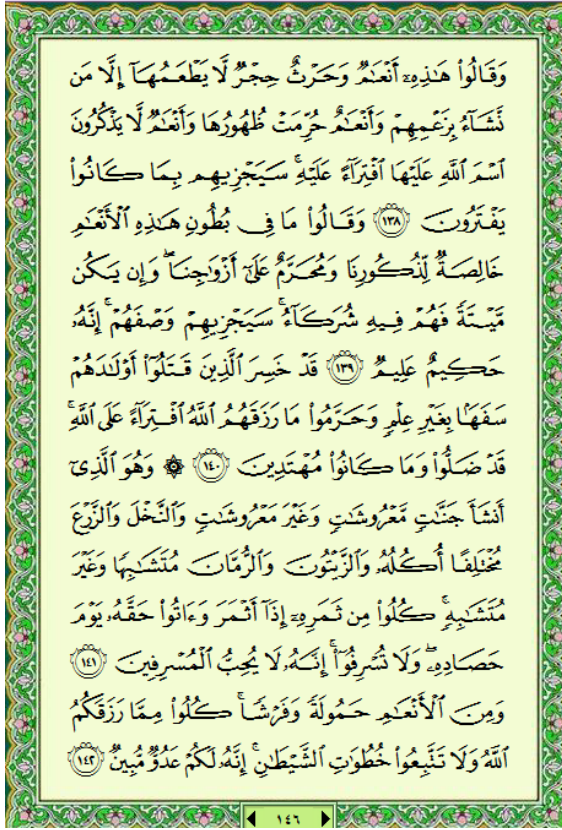 وَقَالُوا۟ هَـٰذِهِۦٓ أَنْعَـٰمٌ وَحَرْثٌ حِجْرٌ لَّا يَطْعَمُهَآ إِلَّا مَن
نَّشَآءُ بِزَعْمِهِمْ وَأَنْعَـٰمٌ حُرِّمَتْ ظُهُورُهَا وَأَنْعَـٰمٌ لَّا يَذْكُرُونَ
ٱسْمَ ٱللَّهِ عَلَيْهَا ٱفْتِرَآءً عَلَيْهِ ۚ سَيَجْزِيهِم بِمَا كَانُوا۟
يَفْتَرُونَ ﴿١٣٨﴾ وَقَالُوا۟ مَا فِى بُطُونِ هَـٰذِهِ ٱلْأَنْعَـٰمِ
خَالِصَةٌ لِّذُكُورِنَا وَمُحَرَّمٌ عَلَىٰٓ أَزْوَٰجِنَا ۖ وَإِن يَكُن
مَّيْتَةً فَهُمْ فِيهِ شُرَكَآءُ ۚ سَيَجْزِيهِمْ وَصْفَهُمْ ۚ إِنَّهُۥ
حَكِيمٌ عَلِيمٌ ﴿١٣٩﴾ قَدْ خَسِرَ ٱلَّذِينَ قَتَلُوٓا۟ أَوْلَـٰدَهُمْ
سَفَهًۢا بِغَيْرِ عِلْمٍ وَحَرَّمُوا۟ مَا رَزَقَهُمُ ٱللَّهُ ٱفْتِرَآءً عَلَى ٱللَّهِ ۚ
قَدْ ضَلُّوا۟ وَمَا كَانُوا۟ مُهْتَدِينَ ﴿١٤٠﴾ ۞ وَهُوَ ٱلَّذِىٓ
أَنشَأَ جَنَّـٰتٍ مَّعْرُوشَـٰتٍ وَغَيْرَ مَعْرُوشَـٰتٍ وَٱلنَّخْلَ وَٱلزَّرْعَ
مُخْتَلِفًا أُكُلُهُۥ وَٱلزَّيْتُونَ وَٱلرُّمَّانَ مُتَشَـٰبِهًا وَغَيْرَ
مُتَشَـٰبِهٍ ۚ كُلُوا۟ مِن ثَمَرِهِۦٓ إِذَآ أَثْمَرَ وَءَاتُوا۟ حَقَّهُۥ يَوْمَ
حَصَادِهِۦ ۖ وَلَا تُسْرِفُوٓا۟ ۚ إِنَّهُۥ لَا يُحِبُّ ٱلْمُسْرِفِينَ ﴿١٤١﴾
وَمِنَ ٱلْأَنْعَـٰمِ حَمُولَةً وَفَرْشًا ۚ كُلُوا۟ مِمَّا رَزَقَكُمُ
ٱللَّهُ وَلَا تَتَّبِعُوا۟ خُطُوَٰتِ ٱلشَّيْطَـٰنِ ۚ إِنَّهُۥ لَكُمْ عَدُوٌّ مُّبِينٌ ﴿١٤٢﴾
١٤٦